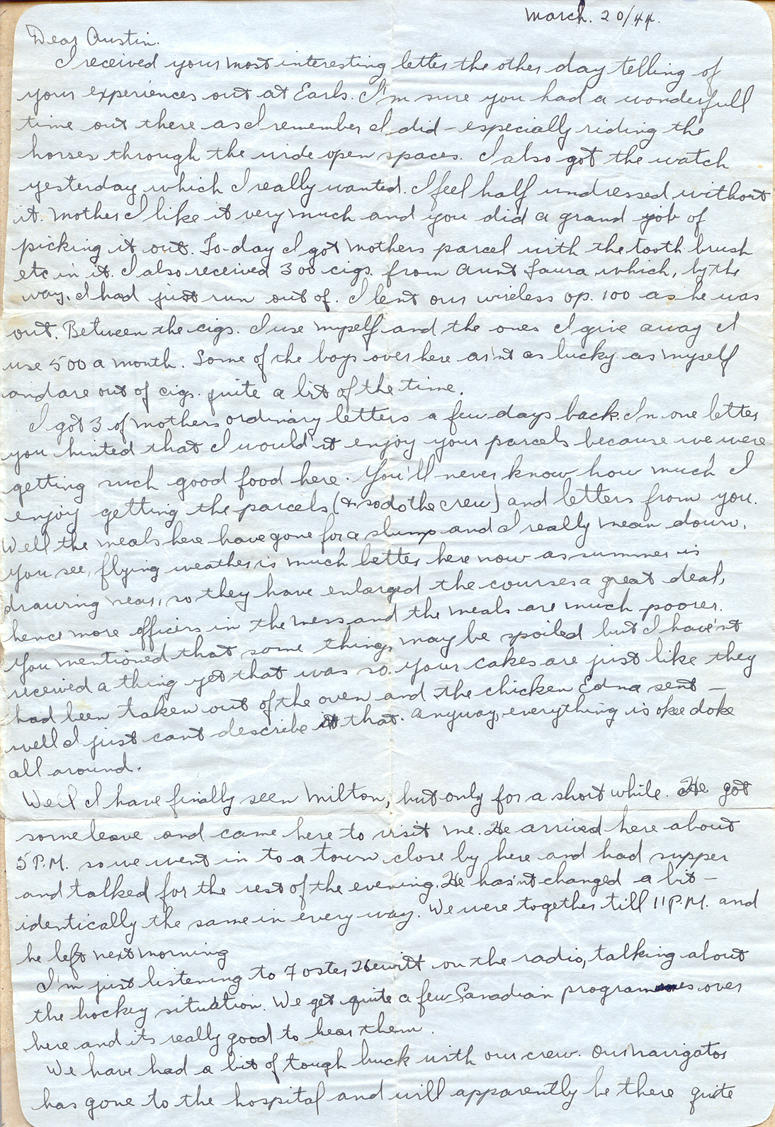 March. 20/44.
Dear Austin.
I received your most interesting letter the other day telling of
your experiences out at Earls. I'm sure you had a wonderfull
time out there as I remember I did - especially riding the
horses through the wide open spaces. I also got the watch
yesterday which I really wanted. I feel half undressed without
it. Mother I like it very much and you did a grand job of
picking it out. To-day I got mothers parcel with the tooth brush
etc in it. I also received 300 cigs. from Aunt Laura which, by the
way, I had just run out of. I lent our wireless op. 100 as he was
out. Between the cigs. I use myself and the ones I give away I
use 500 a month. Some of the boys over here ain't as lucky as myself
and are out of cigs. quite a bit of the time.
I got 3 of mothers ordinary letters a few days back. In one letter
you hinted that I would'nt enjoy your parcels because we were
getting such good food here. You'll never know how much I
enjoy getting the parcels (& so do the crew) and letters from you.
Well the meals here have gone for a slump and I really mean down.
You see, flying weather is much better here now as summer is
drawing near, so they have enlarged the courses a great deal,
hence more officers in the mess and the meals are much poorer.
You mentioned that some things may be spoiled but I have'nt
received a thing yet that was so. Your cakes are just like they
had been taken out of the oven and the chicken Edna sent -
well I just cant describe that. Anyway, everything is oke doke
all around.
Well I have finally seen Milton, but only for a short while. He got
some leave and came here to visit me. He arrived here about
5 P.M. so we went in to a town close by here and had supper
and talked for the rest of the evening. He has'nt changed a bit -
identically the same in every way. We were together till 11 P.M. and
he left next morning
I'm just listening to Foster Hewitt on the radio, talking about
the hockey situation. We get quite a few Canadian programmes over
here and its really good to hear them.
We have had a bit of tough luck with our crew. Our navigator
has gone to the hospital and will apparently be there quite